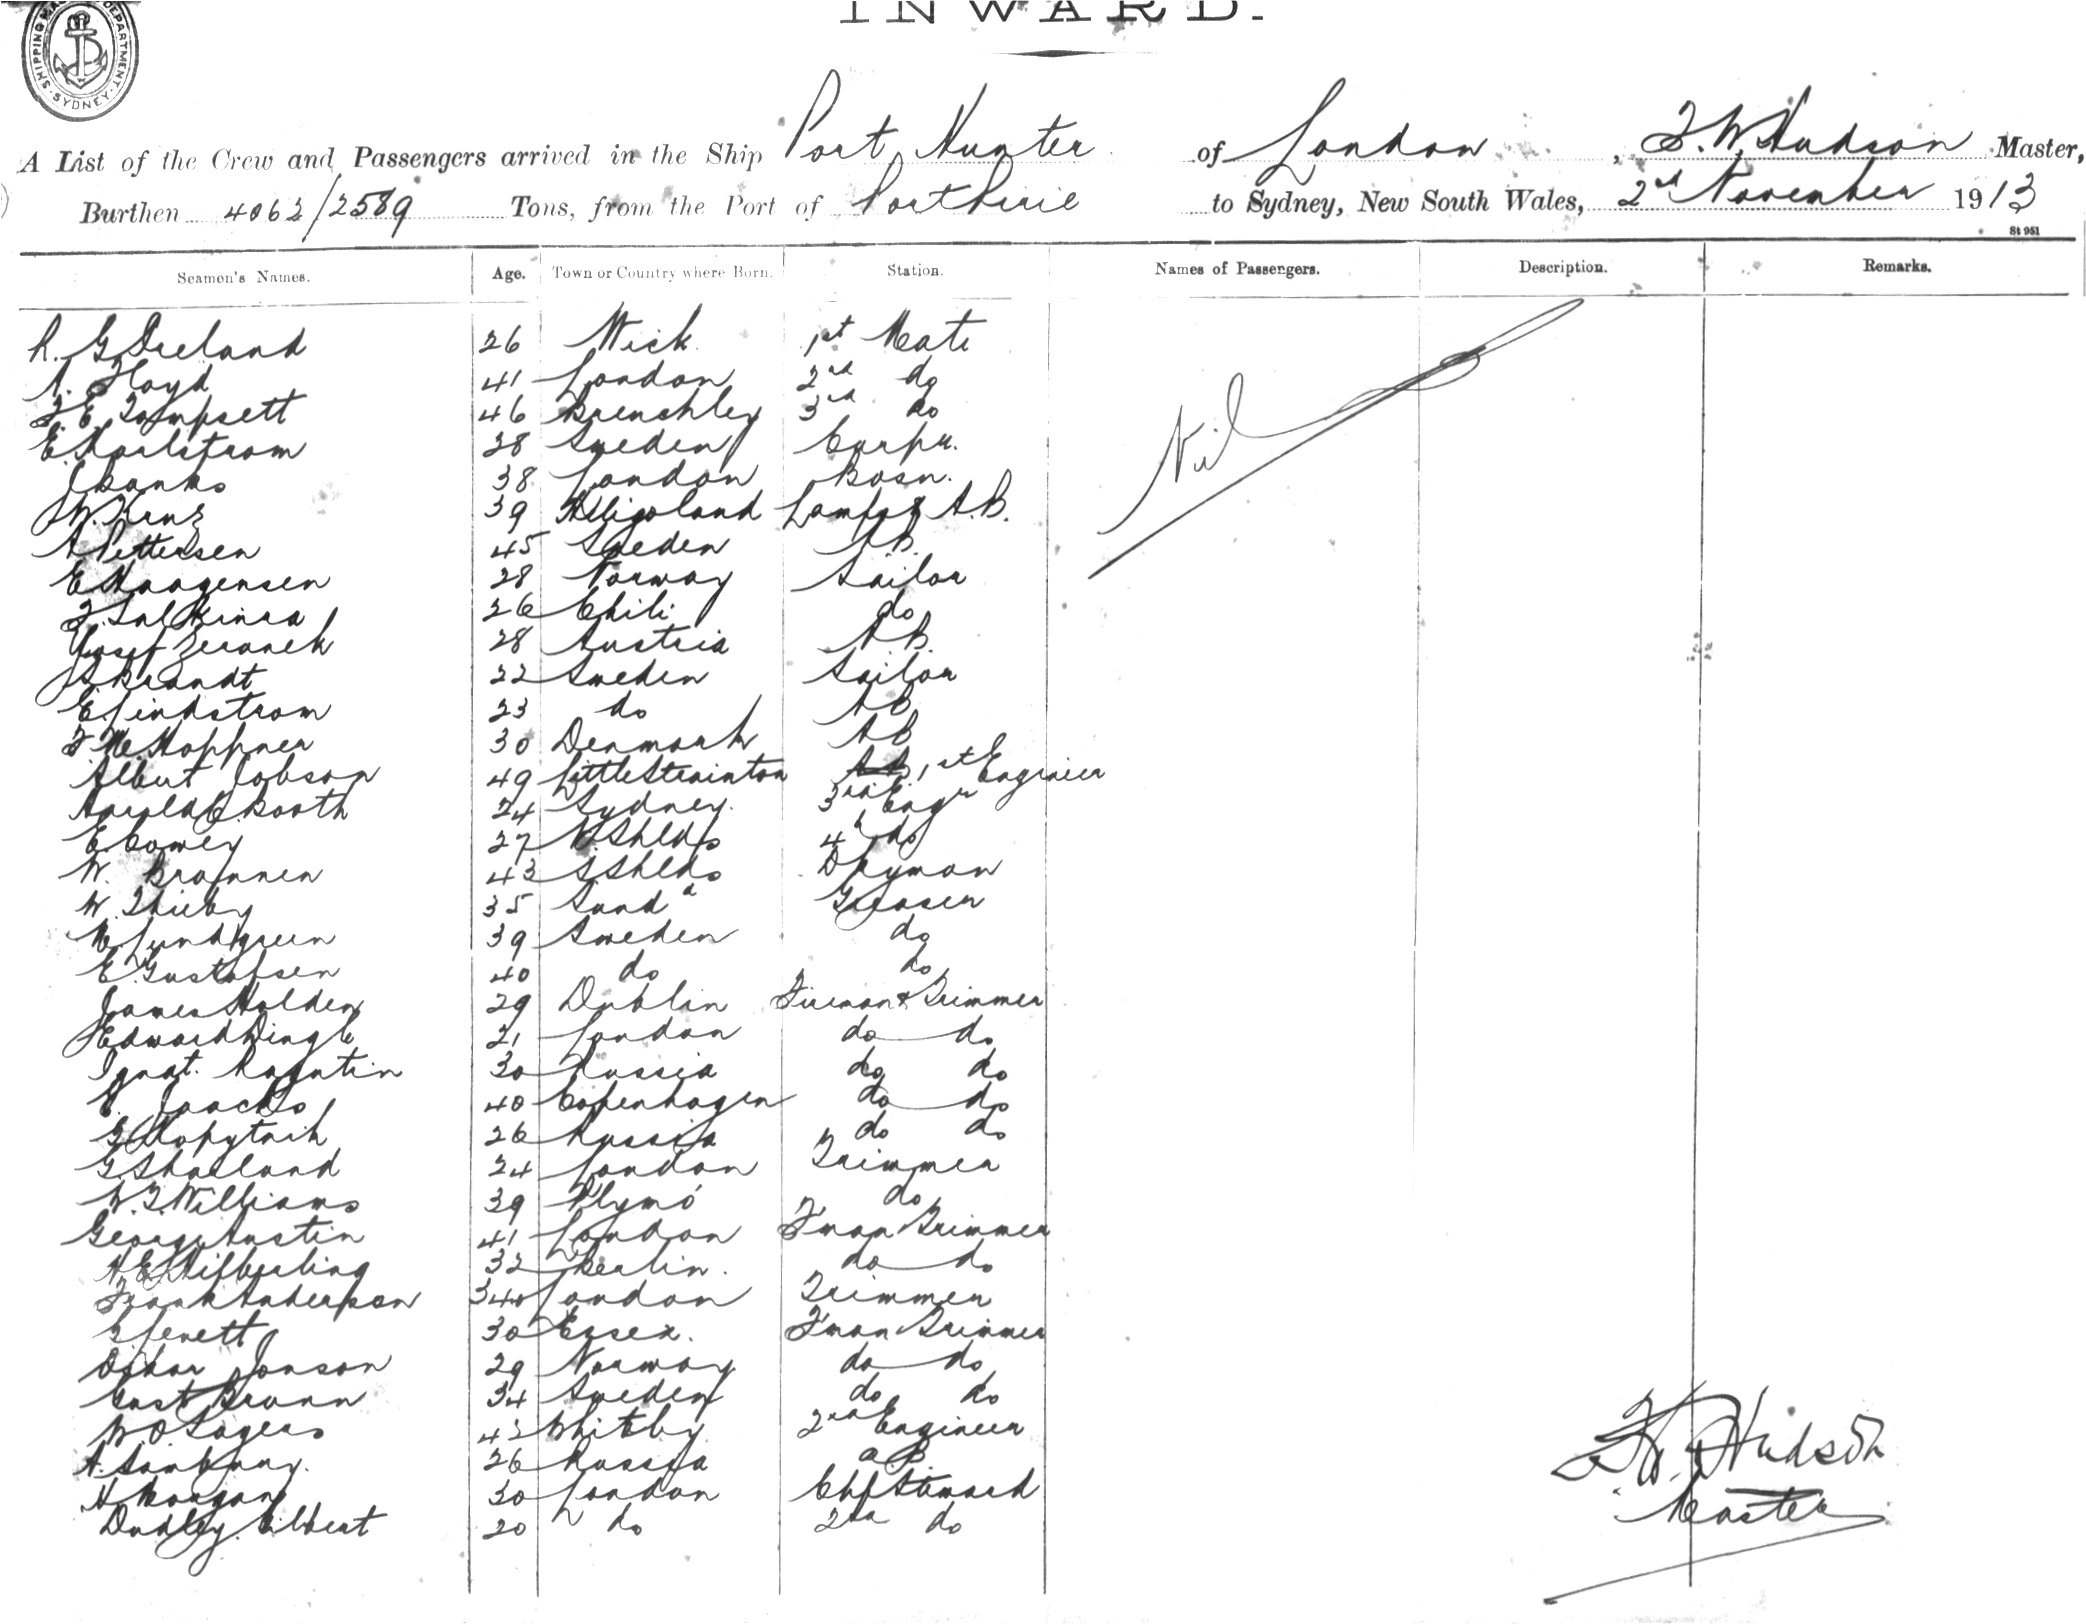 INWARD.
SHIPPING MASTER'S DEPARTMENT. SYDNEY.
A List of the Crew and Passengers arrived in the Ship Port Hunter of London, F. W. Hudson Master,
Burthen 4062/2589 Tons, from the Port of Port Pirie to Sydney, New South Wales, 2nd November 1913
St 951
Seamen's Names. Age. Town or Country where Born. Station. Names of Passengers. Description. Remarks.
R. G. Ireland 26 Wick 1st Mate
A. Floyd 41 London 2nd do
F. E. Tompsett 46 Brenchley 3rd do
E. Karlstrom 28 Sweden Carpr.
J Banks 38 London Bosn.
W. Kruz 39 Heligoland Lamps & A.B.
A Pettersen 45 Sweden AB.
E Haagensen 28 Norway Sailor
26 Chili do
Josef Zeranek 28 Austria AB.
Brandt 22 Sweden Sailor
E. Lindstrom 23 do AB
Hoppner 30 Denmark AB
Albert Jobson 49 Little Strainton 1st Engineer
Harold C Booth 24 Sydney. 3rd Engr
E. Cowey 27 N. Shlds 4th do
W. Brannen 43 S Shlds Dkyman
W. Thirby 35 Sundd Greaser
M Lundgreen 39 Sweden do
E. Gustafsen 40 do do
James Holden 29 Dublin Fireman & Trimmer
Edward Dingle 21 London do do
Ignat. 30 Russia do do
Jaacks 40 Copenhagen do do
Kopytnik 26 Russia do do
G. Shalland 24 London Trimmer
W. T. Williams 39 Plymo' do
George Austin 41 London F'man Trimmer
A. E. Hilberling 32 Berlin. do do
Frank Anderson 34 London Trimmer
Lenett 30 Essex. F'man Trimmer
Oskar Jonson 29 Norway do do
Gust Brunn 34 Sweden do do
W. O. Sagers 42 Whitby 2nd Engineer
A. 26 Russia a.B.
H Morgan 30 London Chf Steward
Dudley Gilbert 20 do 2nd do
Nil
F. W. Hudson
Master